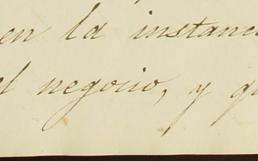 en la instanc
el negocio, y qu